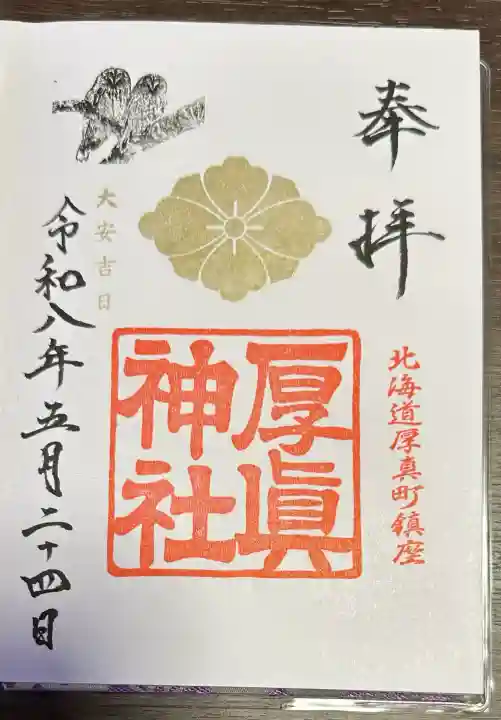 奉拝
北海道厚真町鎮座
厚眞
神社
大安吉日
令和八年五月二十四日